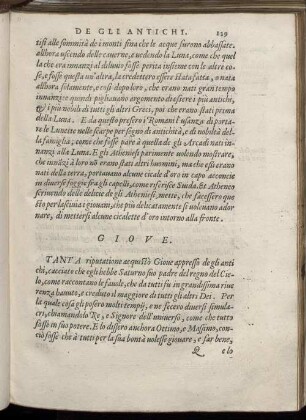 DE GLI ANTICHI. 129
tisi alle sommità de i monti fina che le acque furono abbassate,
allhora uscendo delle cauerne, e uedendo la Luna, come che quel
la che era innanzi al diluuio fosse perita insieme con le altre co-
se, e fosse questa un'altra, la credettero essere stata fatta, e nata
allhora solamente, e così dapoi loro, che erano nati gran tempo
innanzi e quindi pigliauano argomento di essere i più antichi,
e i più nobili di tutti gli altri Greci, poi che erano stati prima
della Luna. E da questo presero i Romani l'usanza di porta-
re le Lunette nelle scarpe per segno di antichità, e di nobiltà del-
la famiglia, come che fosse pare à quella de gli Arcadi nati in-
nanzi alla Luna. E gli Atheniesi parimente uolendo mostrare,
che innāzi à loro nō erano stati altri huomini, ma che essi erano
nati della terra, portauano alcune cicale d'oro in capo acconcie
in diuerse foggie fra gli capelli, come riferisce Suida. Et Atheneo
scriuendo delle delicie de gli Atheniesi, mette, che facessero que
sto per lasciuia i giouani, che più delicatamente si uoleuano ador
nare, di mettersi alcune cicalette d'oro intorno alla fronte.
GIOVE.
TANTA riputatione acquistò Gioue appresso de gli anti
chi, cacciato che egli hebbe Saturno suo padre del regno del Cie-
lo, come raccontano le fauole, che da tutti fu in grandissima riue
renza hauuto, e creduto il maggiore di tutti gli altri Dei. Per
la quale cosa gli posero molti tempij, e ne fecero diuersi simula-
cri, chiamandolo Re, e Signore dell'uniuerso, come che tutto
fosse in suo potere. E lo dissero anchora Ottimo, e Massimo, con-
ciò fosse che à tutti per la sua bontà uolesse giouare, e far bene,
Q elo